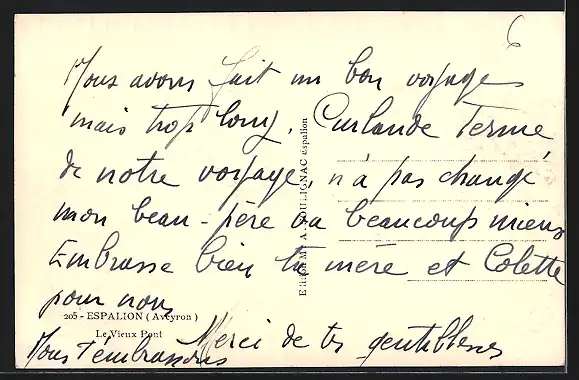 6
Nous avons fait un bon voyage
mais trop long. Curlande Terme
de notre voyage, n'a pas changé
mon beau-père va beaucoup mieux
Embrasse bien ta mère et Colette
pour nous
205 - ESPALION (Aveyron)
Le Vieux Pont
Merci de tes gentillesses
Nous t'embrassons
Espalion